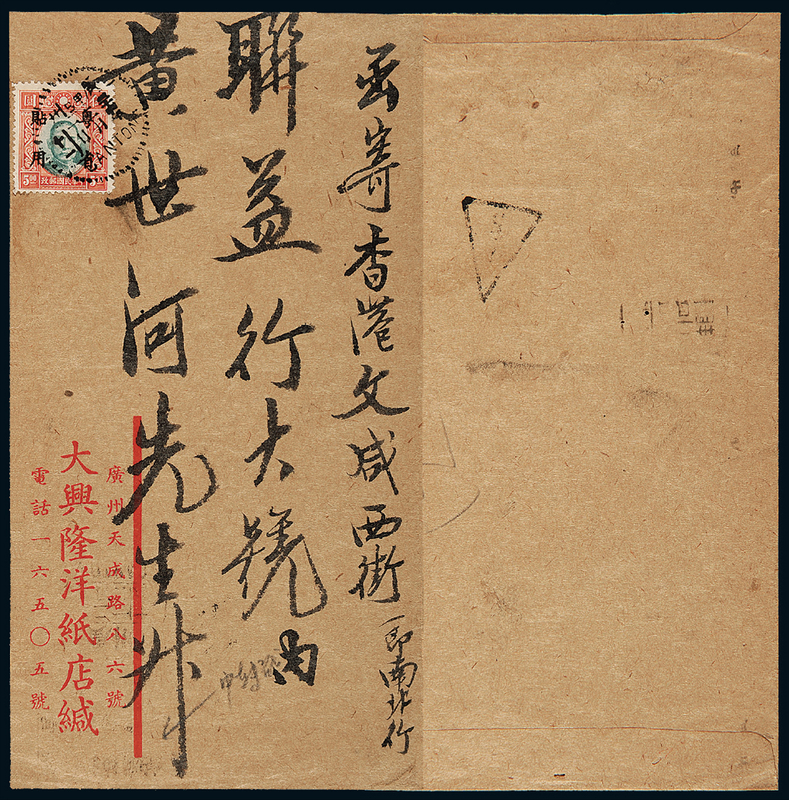 函寄香港文咸西街 即南北行
聯益行大號內
黃世河先生升
廣州天成路八六號
大興隆洋紙店緘
電話一六五〇五號
粵省
貼用